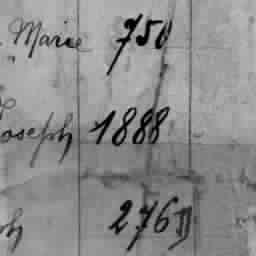 Marie 750
" 
Joseph 1888
ph 276 D